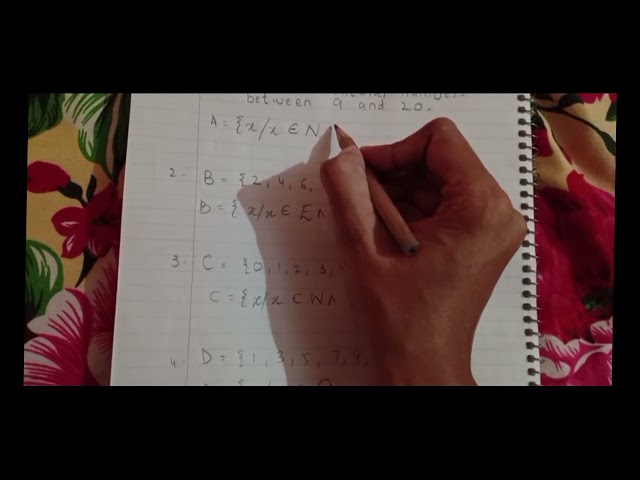 numbers
between 9 and 20.
A = {x/x ∈ N
2. B = {2, 4, 6,
B = {x/x ∈ E ∧
3. C = {0, 1, 2, 3,
C = {x/x ⊂ W ∧
4. D = {1, 3, 5, 7, 9,